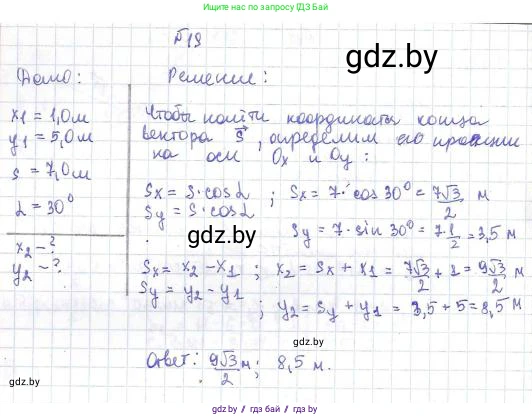 Пишите нам по запросу ГДЗ Бай
№18
gdz.by
Дано:
Решение:
x1 = 1,0 м
y1 = 5,0 м
s = 7,0 м
α = 30°
x2 - ?
y2 - ?
Чтобы найти координаты конца
вектора s⃗, определим его проекции
на оси Ox и Oy:
Sx = S·cosα ; Sx = 7·cos30° = 7√3/2 м
Sy = S·cosα
gdz.by
Sy = 7·sin30° = 7·1/2 = 3,5 м
Sx = x2 - x1 ; x2 = Sx + x1 = 7√3/2 + 1 = 9√3/2 м
Sy = y2 - y1 ; y2 = Sy + y1 = 3,5 + 5 = 8,5 м
Ответ: 9√3/2 м; 8,5 м.
gdz.by
gdz.by
gdz.by / gdz.by / gdz.by / gdz.by